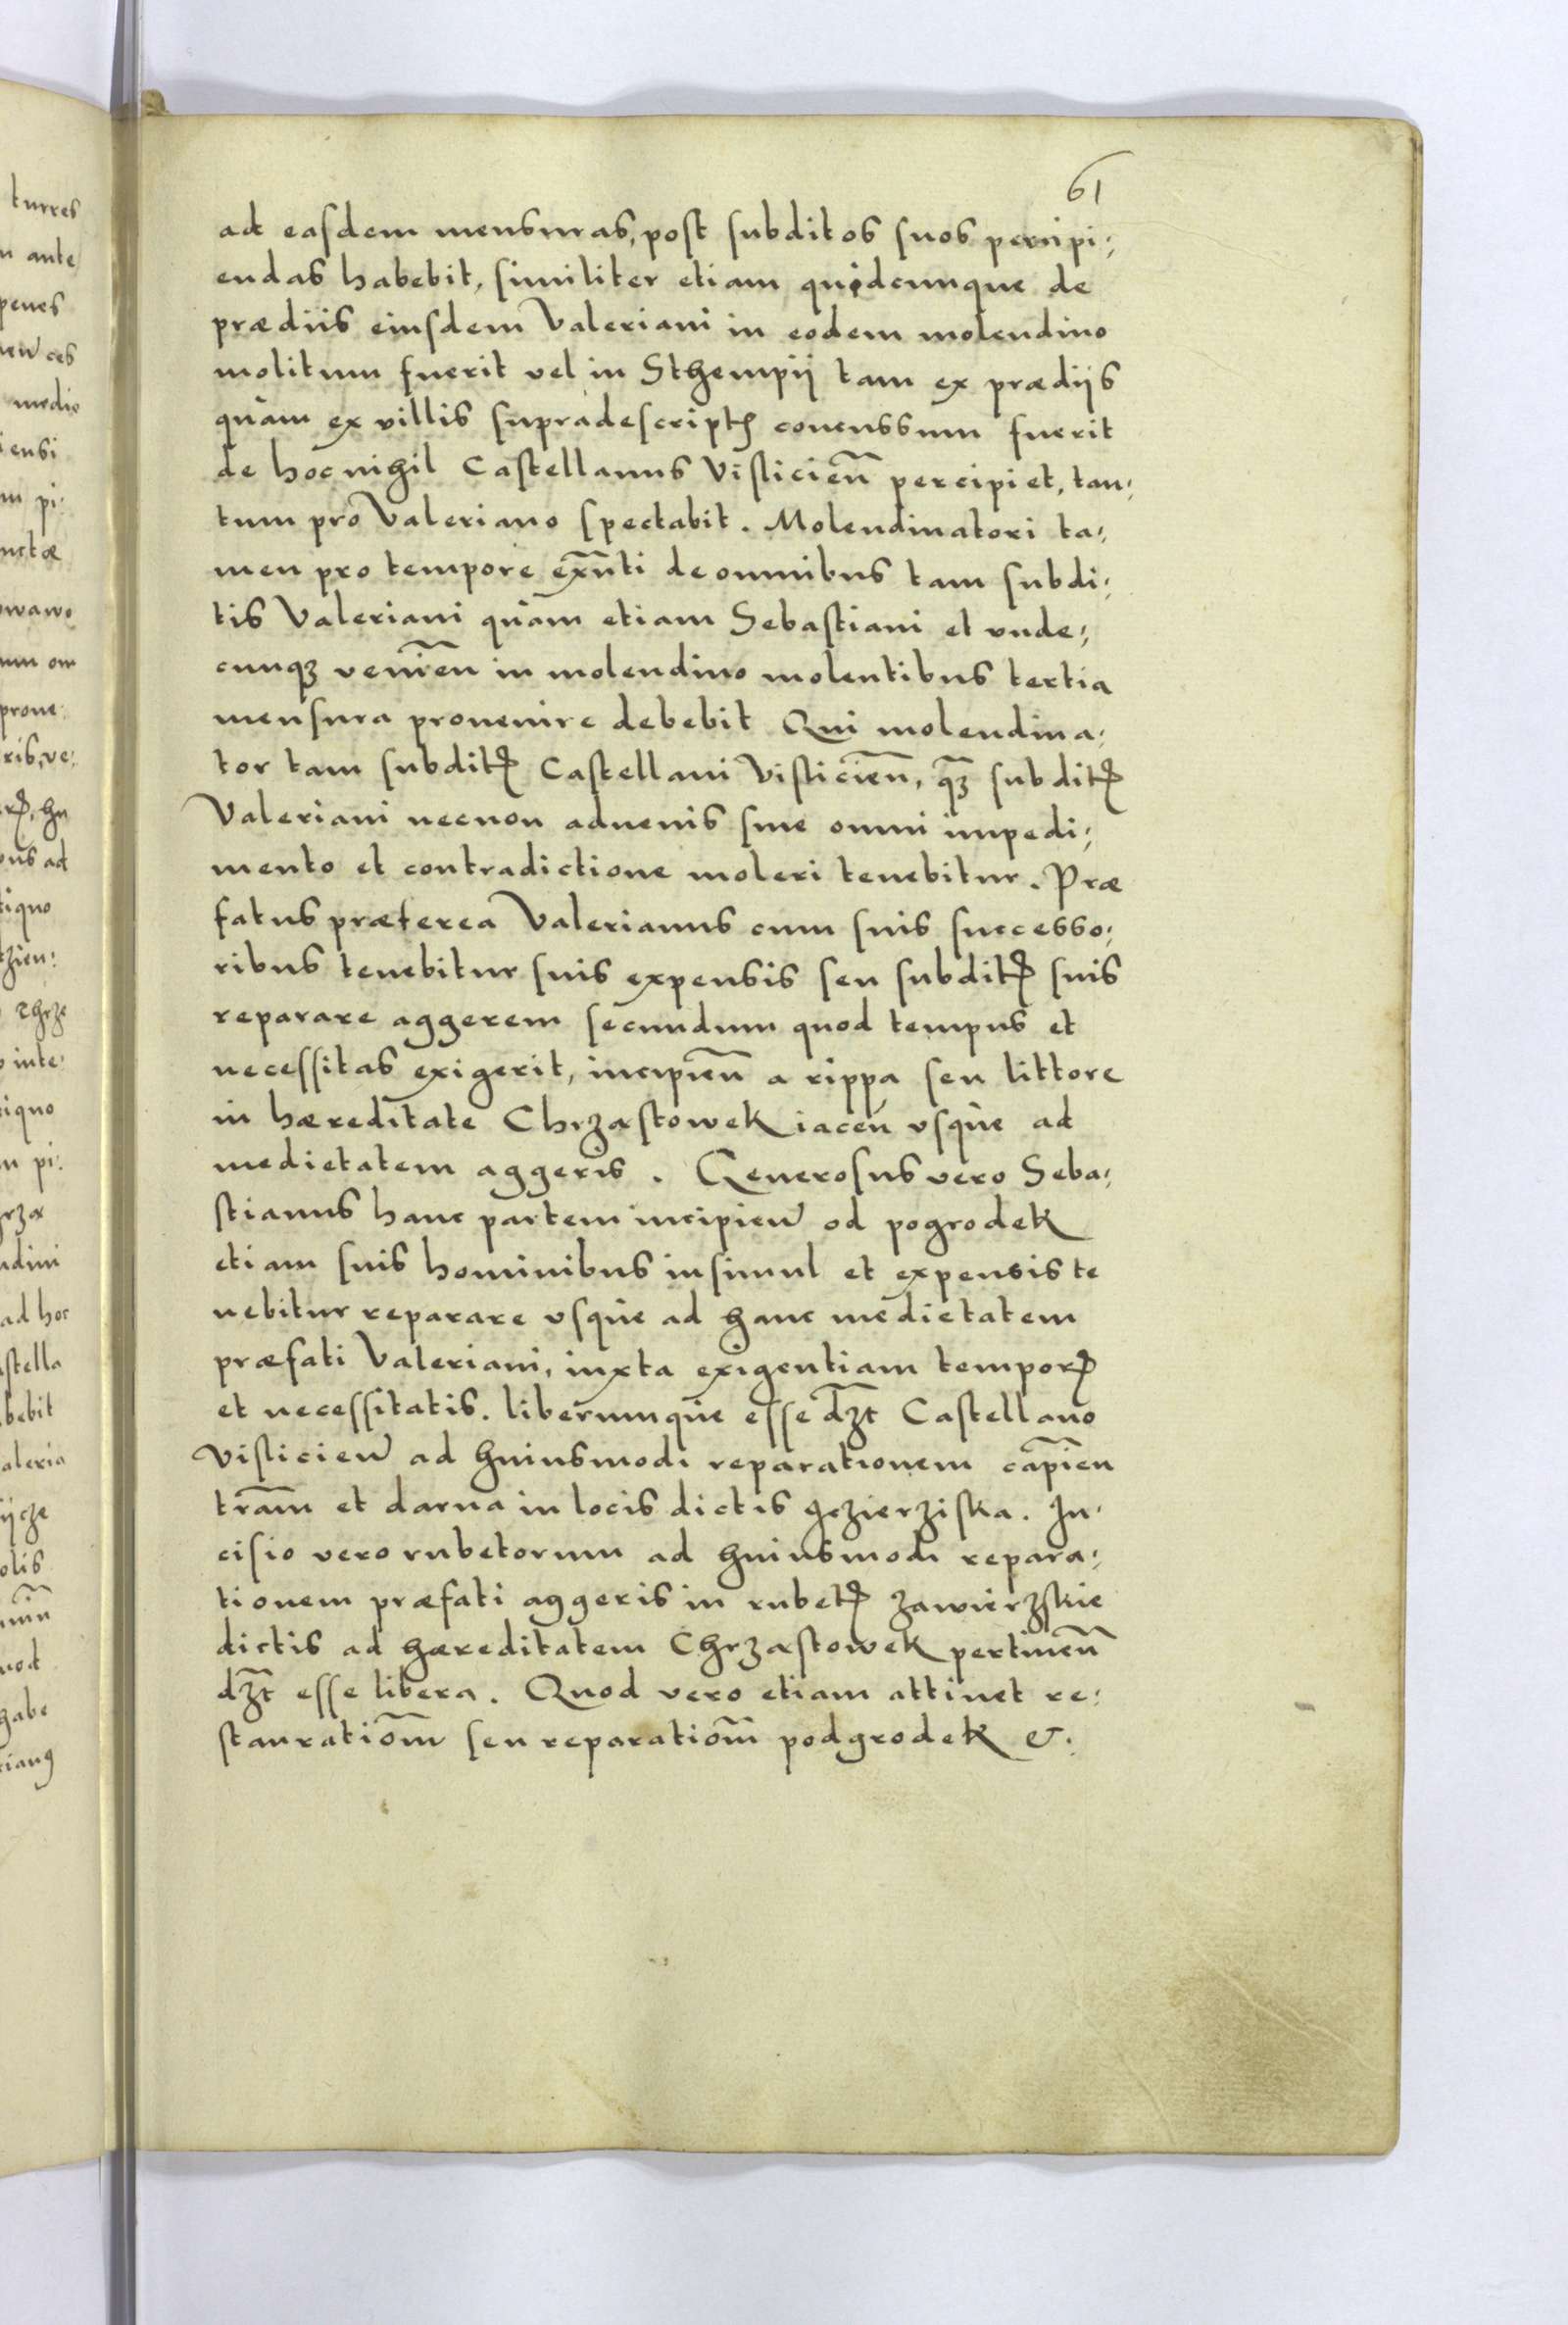 61
ad easdem mensuras, post subditos suos percipi;
endas habebit, similiter etiam quidcunque de
prædiis eiusdem Valeriani in eodem molendino
molitum fuerit vel in Sthempij tam ex prædijs
quàm ex villis supradescriptꝭ conenssum fuerit
de hoc nihil Castellanus Vislicien̄ percipiet, tan;
tum pro Valeriano spectabit. Molendinatori ta;
men pro tempore exn̄ti de omnibus tam subdi;
tis Valeriani quàm etiam Sebastiani et vnde;
cunqꝫ venien̄ in molendino molentibus tertia
mensura prouenire debebit Qui molendina;
tor tam subditꝭ Castellani Visliciēn, qꝫ̄ subditꝭ
Valeriani necnon aduenis sine omni impedi;
mento et contradictione moleri tenebitur. Præ
fatus præterea Valerianus cum suis successo;
ribus tenebitur suis expensis seu subditꝭ suis
reparare aggerem secundum quod tempus et
necessitas exigerit, incipien̄ a rippa seu littore
in hæreditate Chrząstowek iacen̄ vsque ad
medietatem aggeris. Generosus vero Seba;
stianus hanc partem incipien̄ od pogrodek
etiam suis hominibus insimul et expensis te
nebitur reparare vsque ad hanc medietatem
præfati Valeriani, iuxta exigentiam temporꝭ
et necessitatis. liberumque esse dꝫt Castellano
Vislicien̄ ad huiusmodi reparationem capien̄
trām et darna in locis dictis Jezierziska. In;
cisio vero rubetorum ad huiusmodi repara;
tionem præfati aggeris in rubetꝭ zawierzskie
dictis ad hæreditatem Chrząstowek pertinen̄
dꝫt esse libera. Quod vero etiam attinet re;
stauratiōm seu reparatiōm podgrodek &.